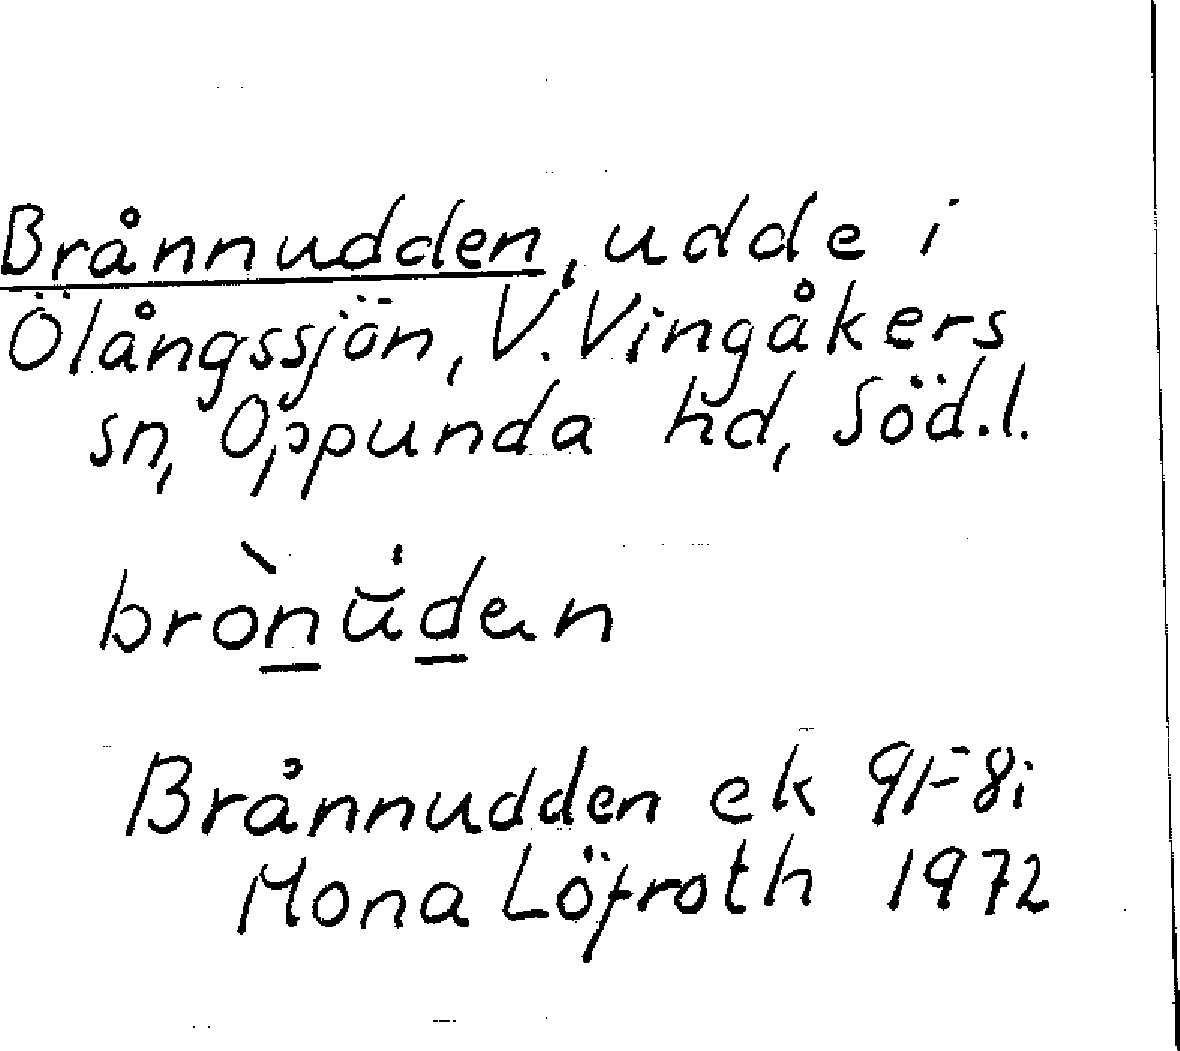 Brånnudden, udde i
Ölångssjön, V. Vingåkers
sn, Oppunda hd, Söd.l.
brònŭ́dən
Brånnudden ek 9F8i
Mona Löfroth 1972